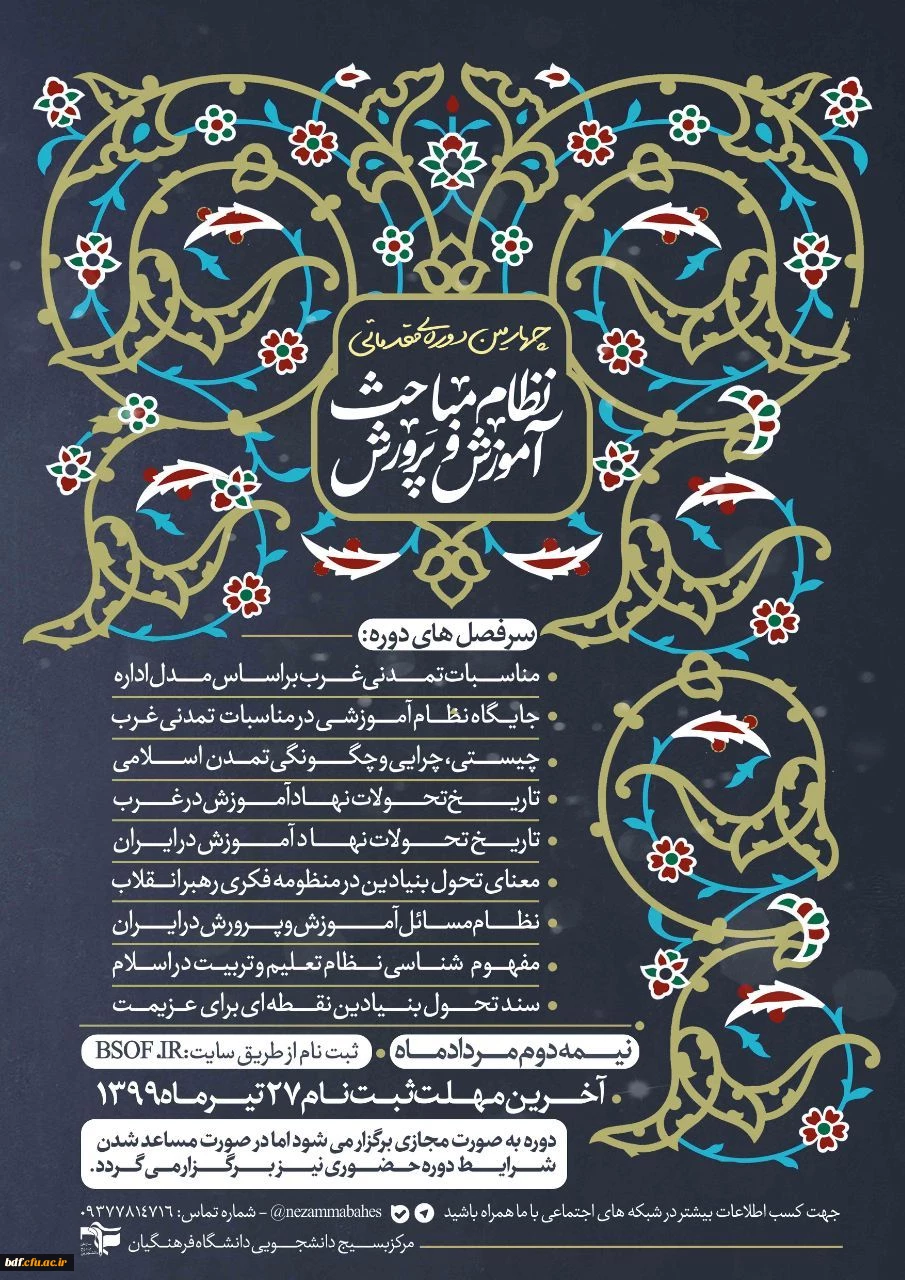 چهارمین دوره‌ی مقدماتی
نظام مباحث
آموزش و پرورش
سرفصل های دوره:
مناسبات تمدنی غرب براساس مدل اداره
جایگاه نظام آموزشی در مناسبات تمدنی غرب
چیستی، چرایی و چگونگی تمدن اسلامی
تاریخ تحولات نهاد آموزش در غرب
تاریخ تحولات نهاد آموزش در ایران
معنای تحول بنیادین در منظومه فکری رهبر انقلاب
نظام مسائل آموزش و پرورش در ایران
مفهوم شناسی نظام تعلیم و تربیت در اسلام
سند تحول بنیادین نقطه ای برای عزیمت
نیمه دوم مرداد ماه • ثبت نام از طریق سایت: BSOF.IR
آخرین مهلت ثبت نام ۲۷ تیر ماه ۱۳۹۹
دوره به صورت مجازی برگزار می شود اما در صورت مساعد شدن
شرایط دوره حضوری نیز برگزار می گردد.
جهت کسب اطلاعات بیشتر در شبکه های اجتماعی با ما همراه باشید @nezammabahes – شماره تماس: ۰۹۳۷۷۸۱۴۷۱۶
مرکز بسیج دانشجویی دانشگاه فرهنگیان
bdf.cfu.ac.ir